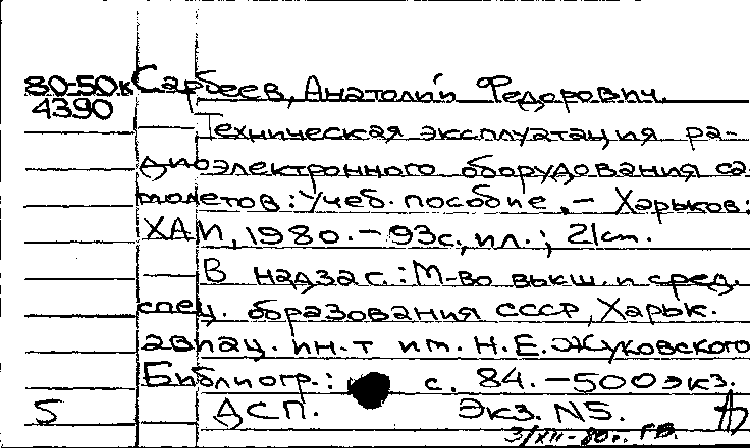 80-50к Сарбеев, Анатолий Федорович.
4390
Техническая эксплуатация ра-
диоэлектронного оборудования са-
молетов: Учеб. пособие. - Харьков:
ХАИ, 1980. - 93с., ил.; 21 см.
В надзаг.: М-во высш. и сред.
спец. образования СССР, Харьк.
авиац. ин-т им. Н.Е. Жуковского
Библиогр.: с. 84. - 500 экз.
5 ДСП. Экз. N5.
3/XII-80г.